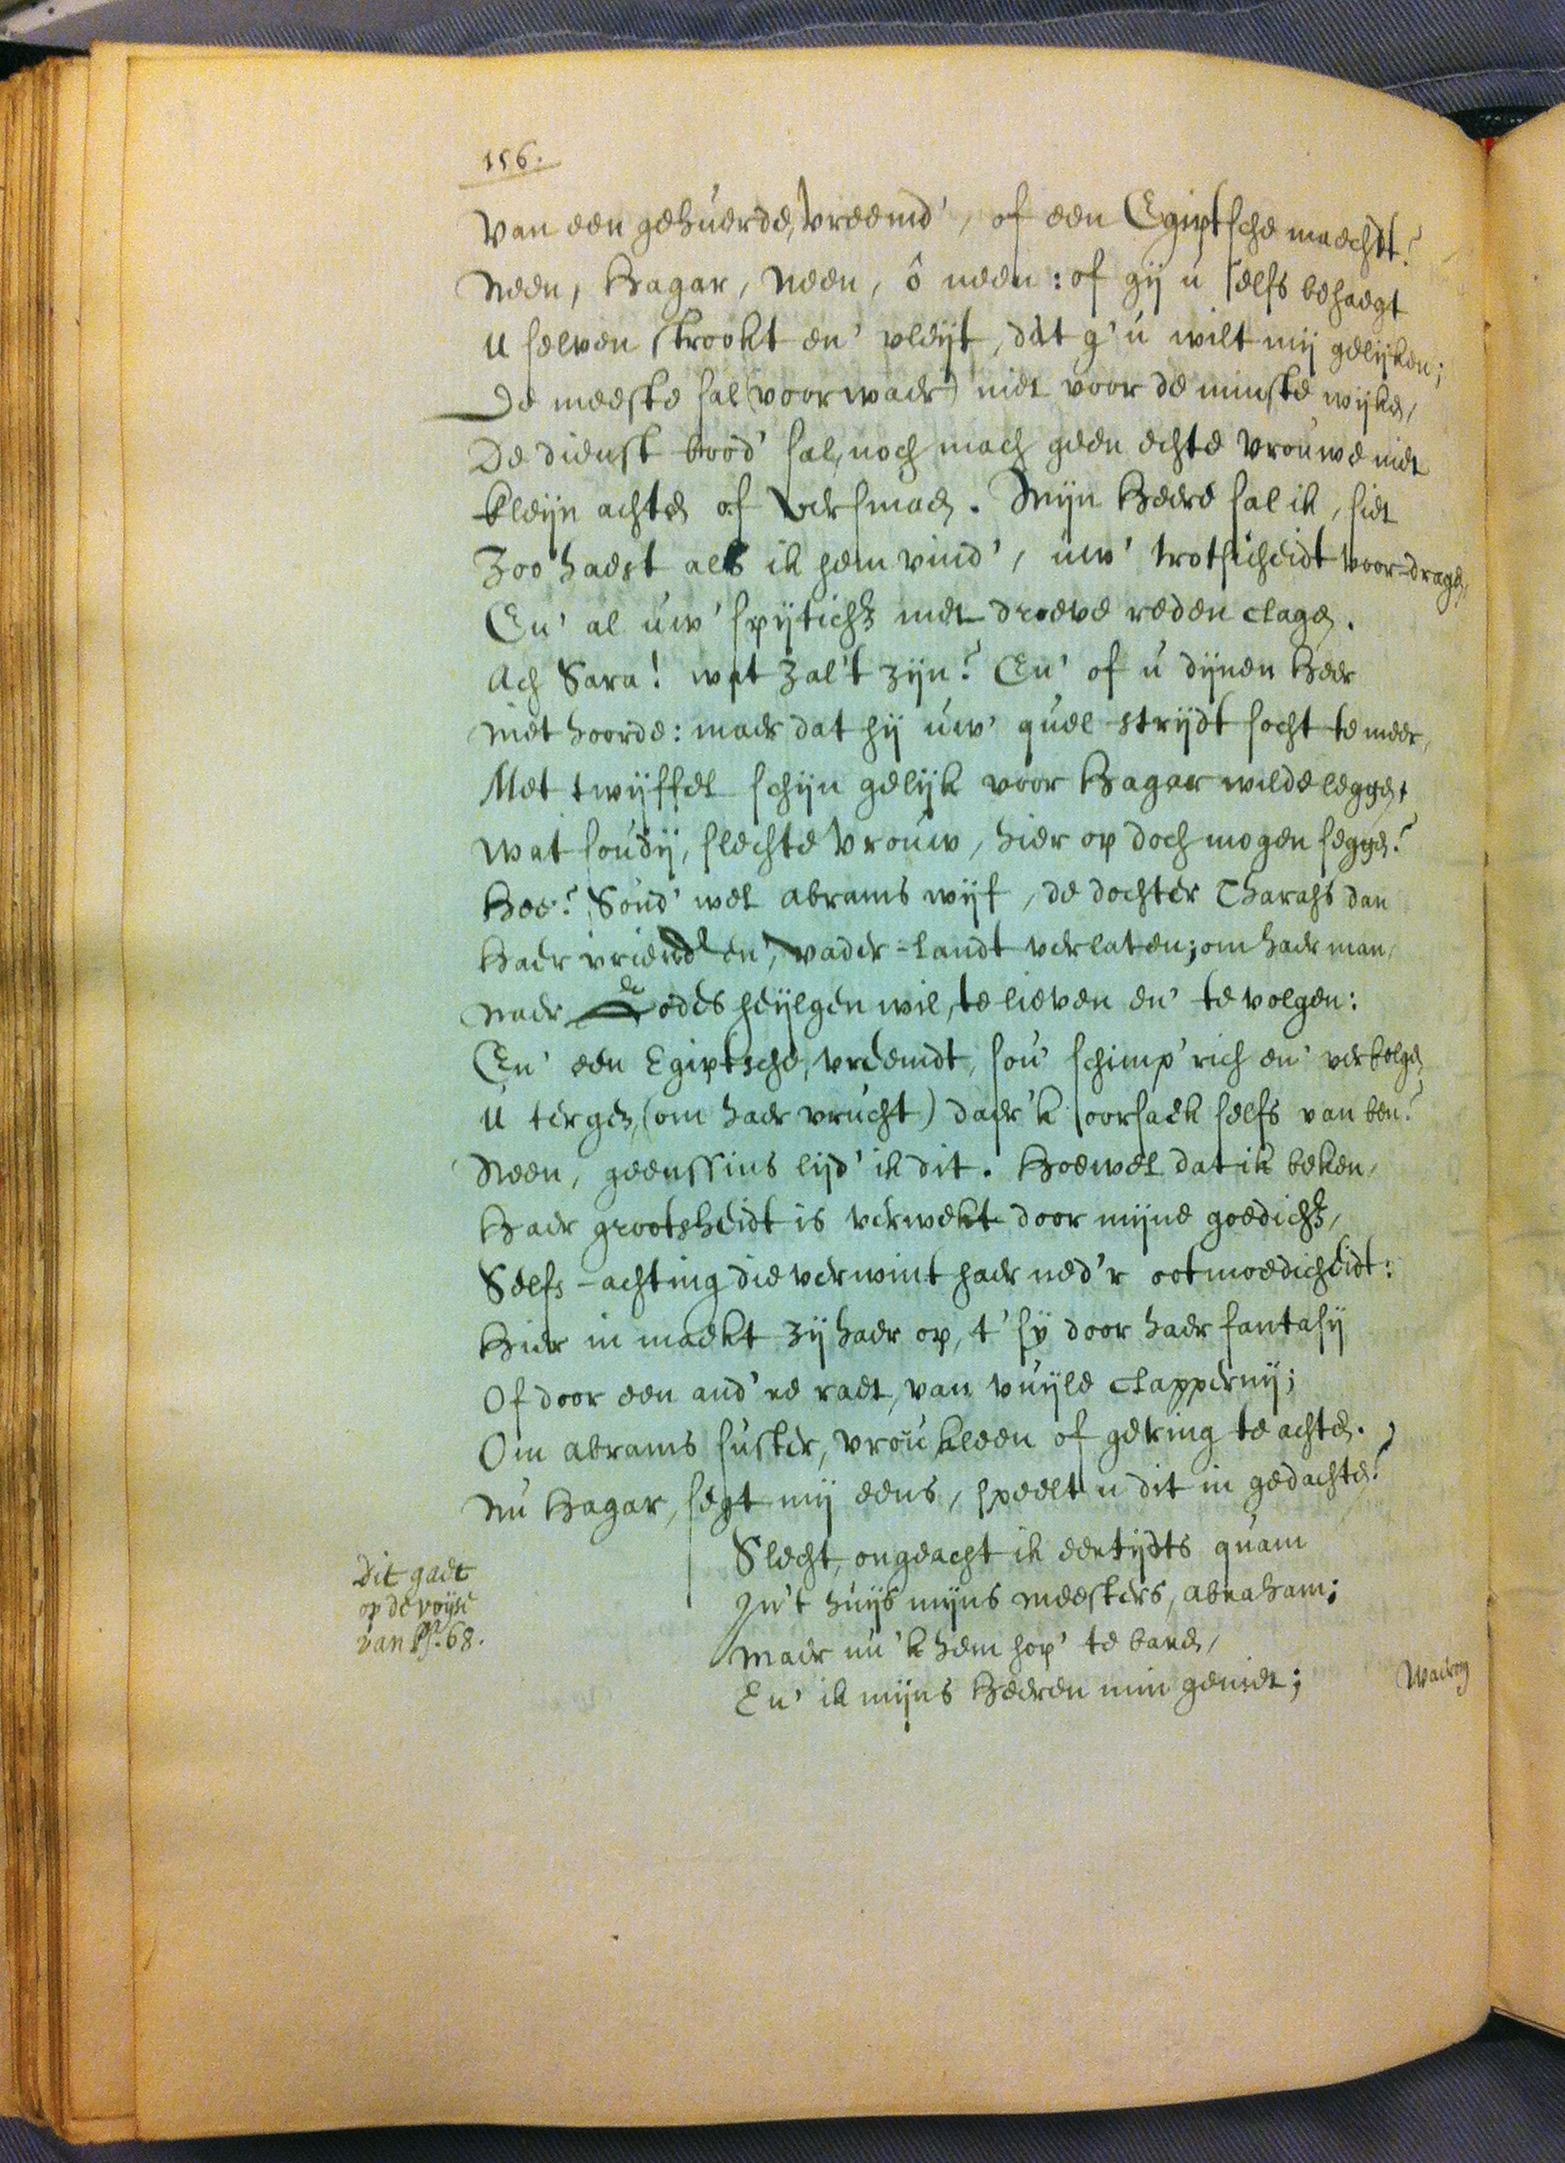 156.
Van een gehuerde, vreemd', of een Egiptsche maechdt?
Neen, Hagar, Neen, ô neen: of gij u selfs behaegt
U selven strookt en' vleijt, dat g'u wilt mij gelijken;
De meeste sal (voorwaer) niet voor de minste wijken,
De dienst bood' sal, noch mach geen echte vrouwe niet
kleijn achten of versmaen. Mijn Heere sal ik, siet
Zoo haest als ik hem vind', uw' trotsicheidt voor-dragen,
En' al uw' spijticht met droeve reden clagen.
Ach Sara! wat zal't zijn? En' of u dijnen Heer
Niet hoorde: maer dat hij uw' quel-strijdt socht te meer,
Met twijffel schijn gelijk voor Hagar wilde leggen,
Wat soudij, slechte vrouw, hier op doch mogen seggen?
Hoe? Soud' wel abrams wijf, de dochter Tharahs dan
Haer vrienden en', vader-landt verlaten; om haer man,
Naer Godes heijlgen wil, te lieven en' te volgen:
En' een Egiptsche, vreemdt, sou' schimp'rich en' verbolgen
U tergen, (om haer vrucht) daer'k oorsaek selfs van ben?
Neen, geenssins lijd' ik dit. Hoewel dat ik beken,
Haer grootsheidt is verwekt door mijne goedicht,
Selfs-achting die verwint haer ned'r ootmoedicheidt:
Hier in maekt zij haer op, t' sy door haer fantasij
Of door een and're raet, van vuijle clappernij;
Om abrams suster, vrou kleen of gering te achten.
Nu Hagar, segt mij eens, speelt u dit in gedachten?
Dit gaet
op de voijse
van Ps. 68.
Slecht, ongeacht ik eertijdts quam
In't huijs mijns meesters, abraham;
Maer nu 'k hem hop' te baren,
En' ik mijns Heeren min geniet;